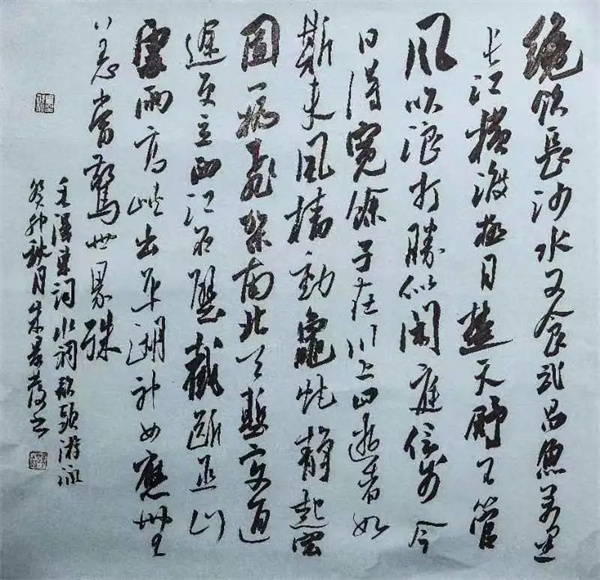 纔饮長沙水又食武昌魚萬里
长江横渡極目楚天舒不管
风吹浪打勝似闲庭信步今
日得寬馀子在川上曰逝者如
斯夫風樯動龜蛇静起宏
圖一橋飛架南北天堑变通
途更立西江石壁截断巫山
雲雨高峡出平湖神女應無
恙當驚世界殊
毛澤東词水调歌頭游泳
癸卯秋月朱景